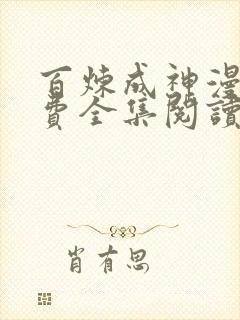 百炼成神漫
费全集閱讀
肖有思